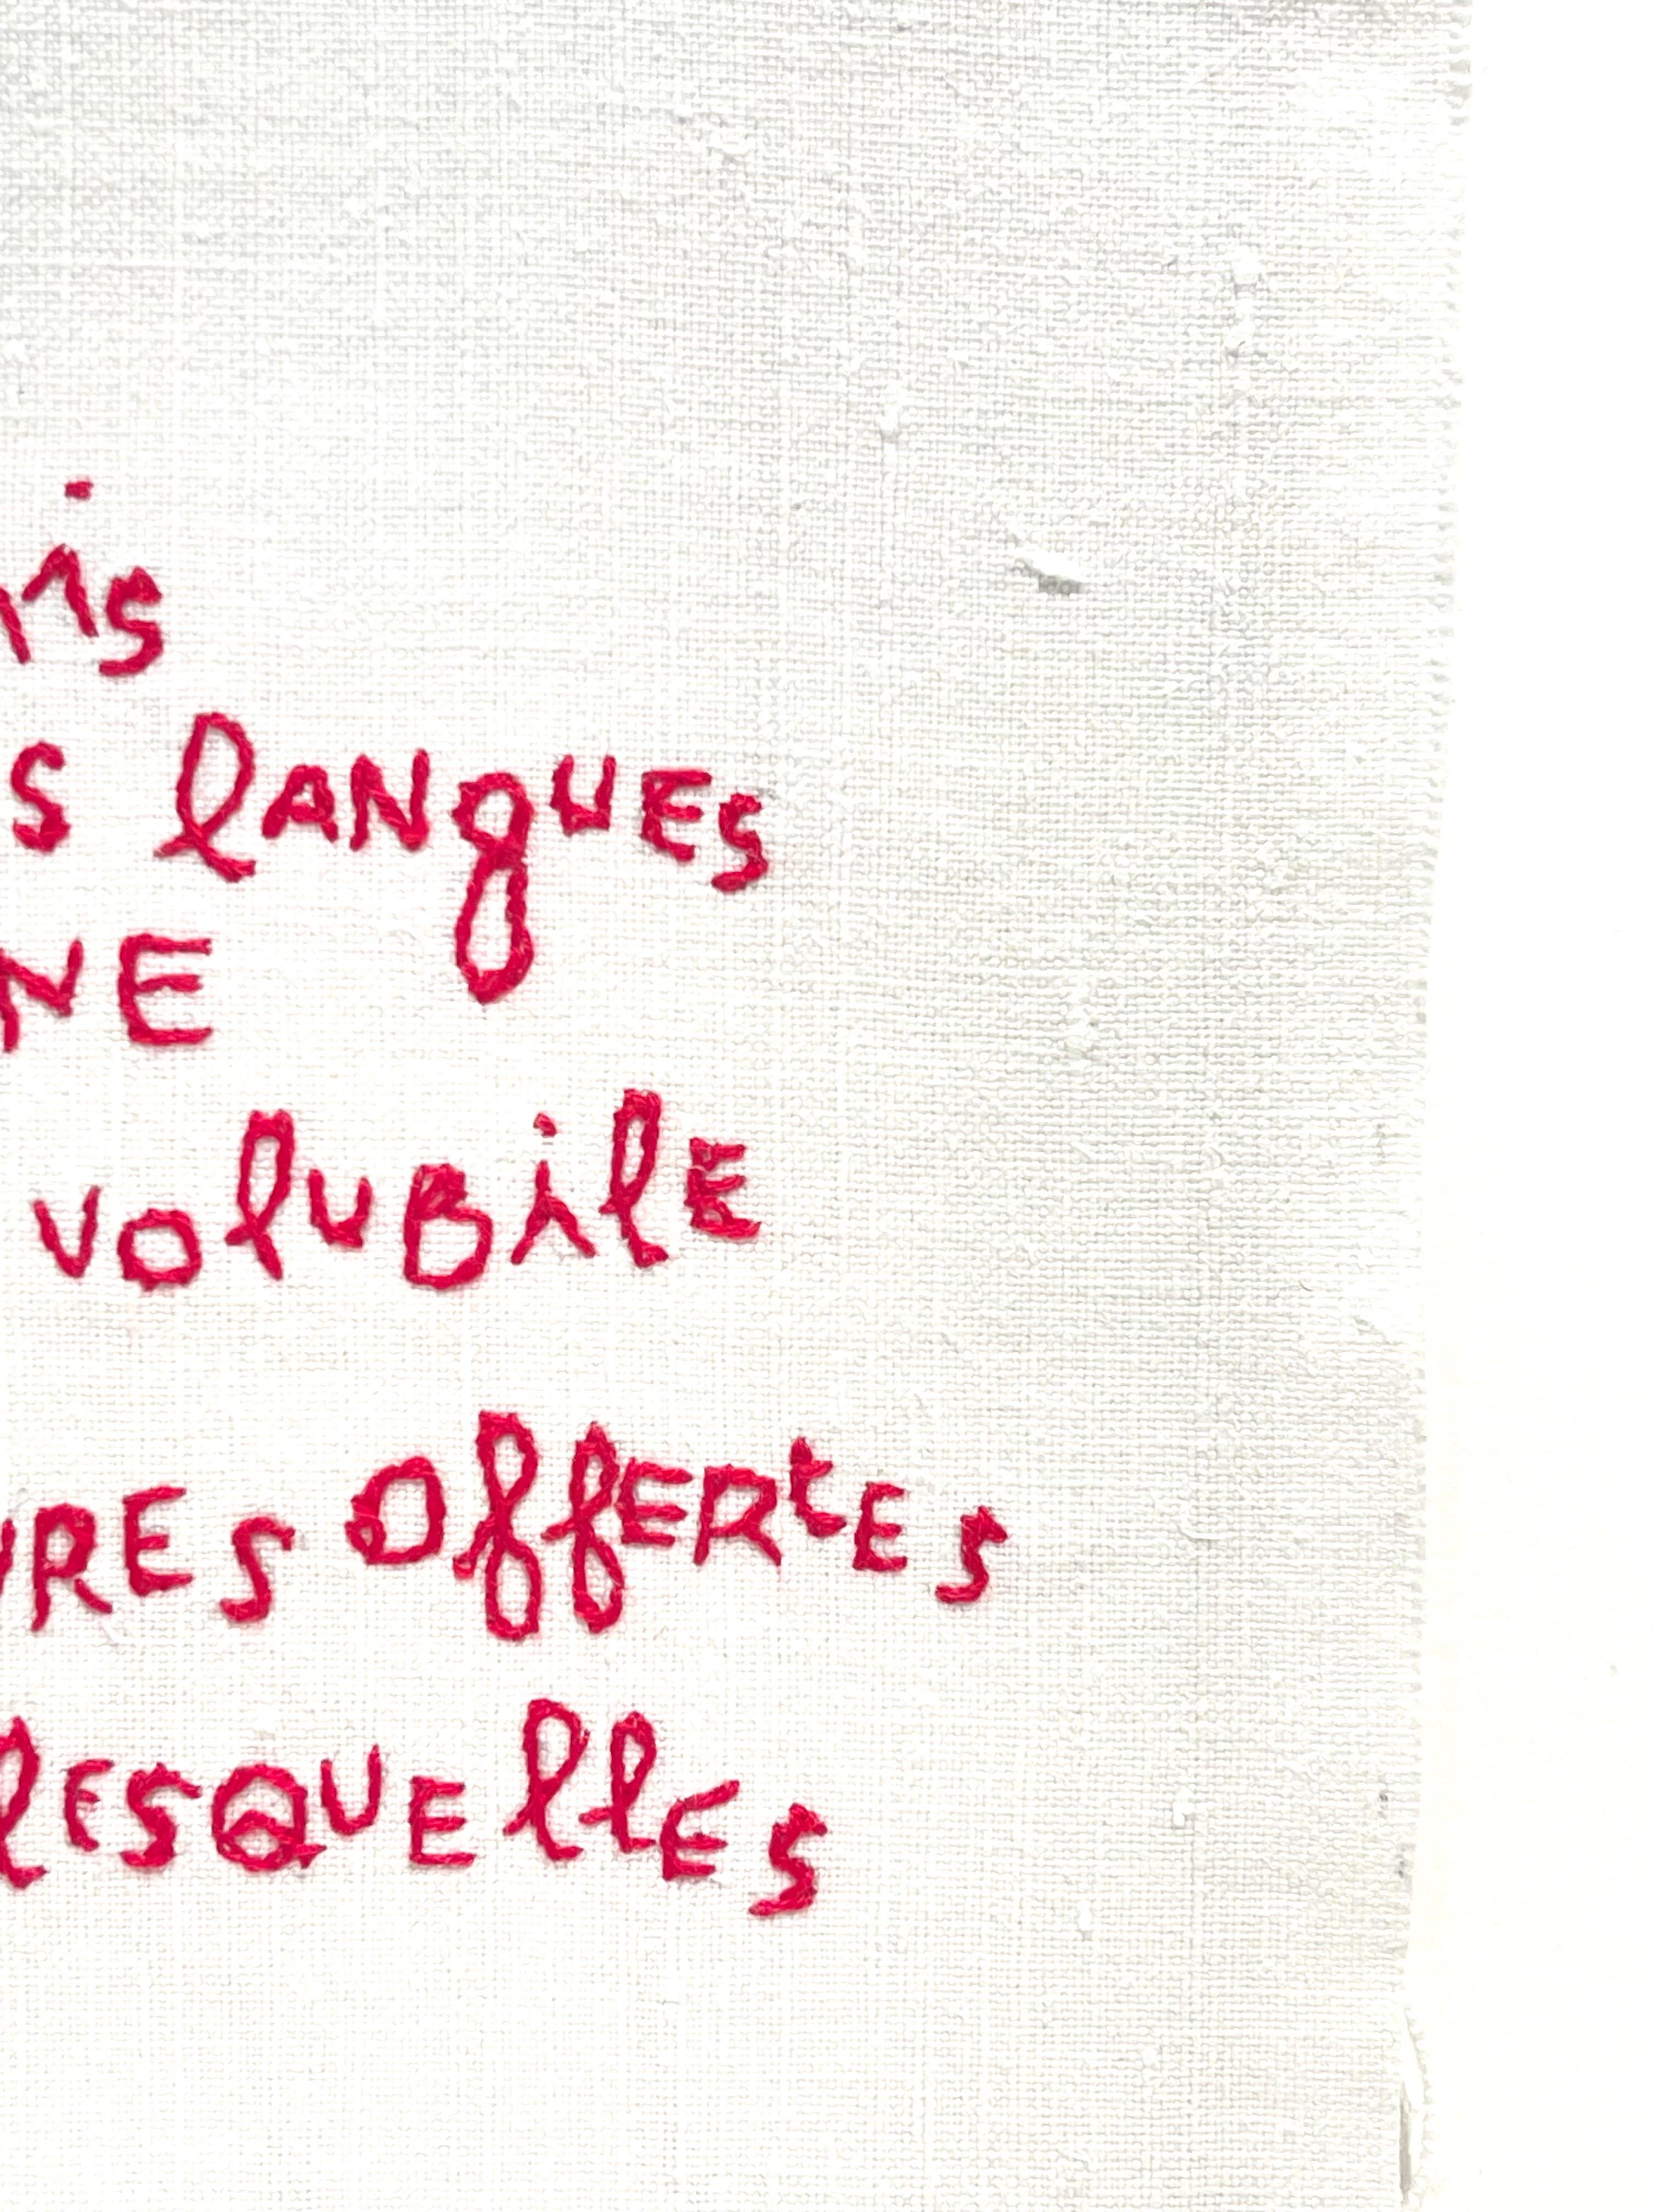 s langues
volubile
offertes
lesquelles